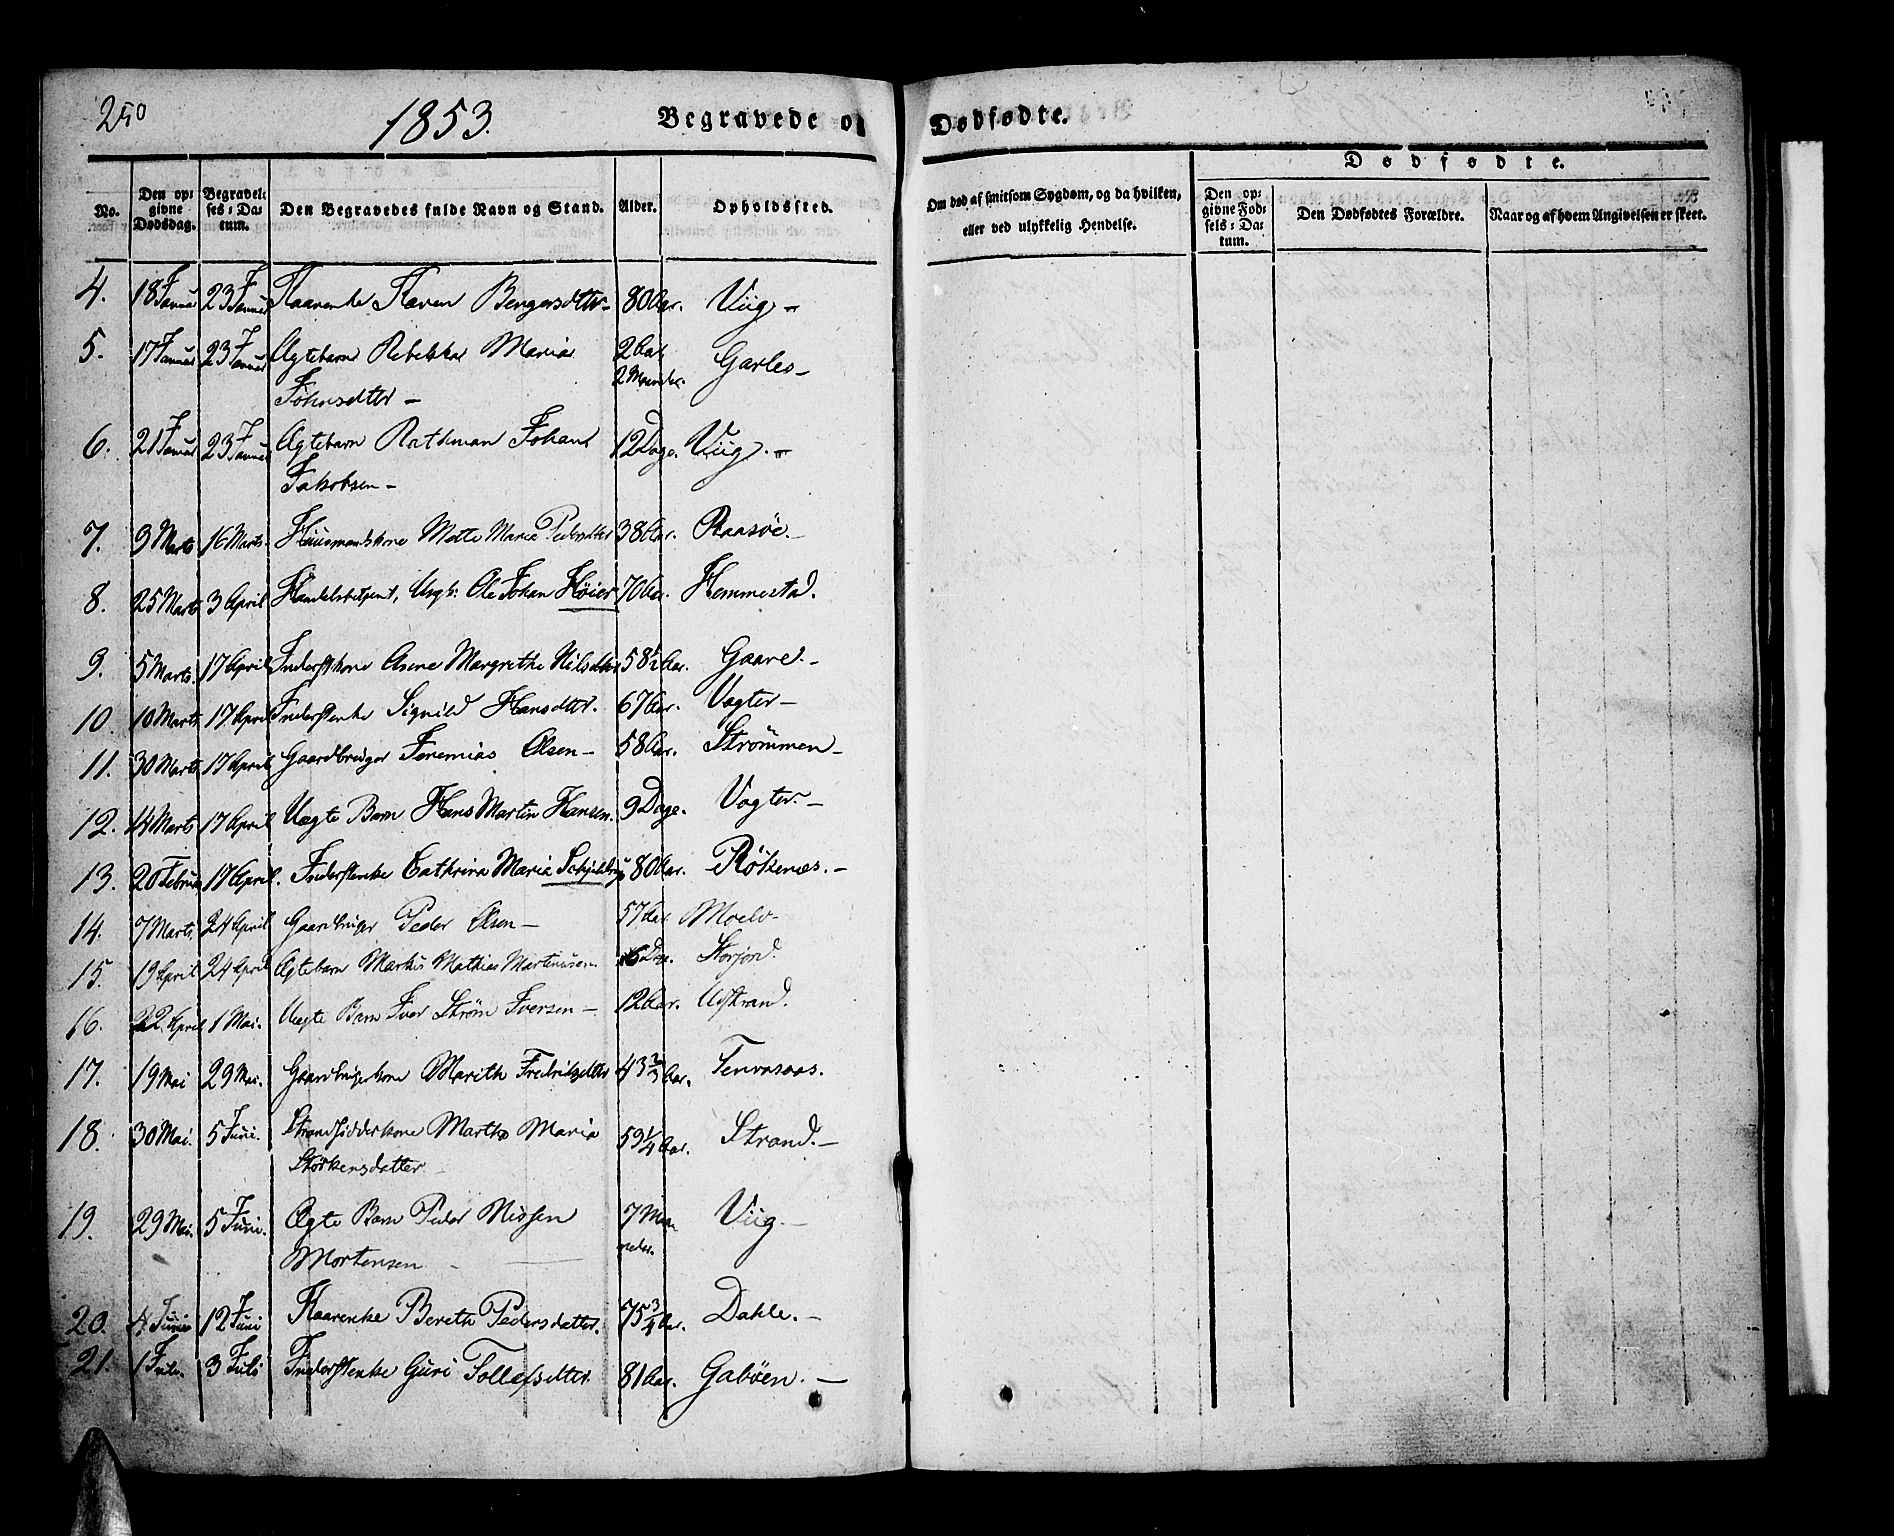 250 1853. Begravede o Dødfødte.
Dødfødte.
No. Den op-givne Dødsdag. Begravel-ses-Da-tum. Den Begravedes fulde Navn og Stand. Alder. Opholdssted. Om død af smitsom Sygdom, og da hvilken, eller ved ulykkelig Hendelse. Den op-givne Fød-sels-Da-tum. Den Dødfødtes Forældre. Naar og af hvem Angivelsen er skeet.
4. 18 Januar 23 Januar Kaarenke Karen Bengersdtter 80 Aar. Viig -
5. 17 Januar 23 Januar Ægtebarn Rebekka Maria 2 Aar 2 Maaneder. Garles -
Johnsdtter -
6. 21 Januar 23 Januar Ægtebarn Rathman Johan 12 Dage. Viig. -
Jakobsen -
7. 3 Marts 16 Marts. Huusmandskone Mette Maria Pedersdtter 38 Aar. Raasøe. -
8. 25 Marts 3 April Handelsbetjent, Ungk: Ole Johan Høier 70 Aar. Hemmestad.
9. 5 Marts. 17 April Inderstkone Asene Margrethe Nilsdtter 58½ Aar. Gaare. -
10. 10 Marts 17 April Inderstenke Signild Hansdtter. 67 Aar. Vogter -
11. 30 Marts 17 April Gaardbruger Jeremias Olsen - 58 Aar. Strømmen -
12. 14 Marts 17 April Uægte Barn Hans Martin Hansen. 9 Dage. Vogter. -
13. 20 Februar 17 April. Inderstenke Cathrina Maria 80 Aar. Røkenæs. -
14. 7 Marts. 24 April Gaardbruger Peder Olsen - 57 Aar. Moelv -
15. 19 April 24 April Ægtebarn Markus Mathias Martinusen. 6 Dage. Storjord.
16. 22. April 1 Mai. Uægte Barn Iver Strøm Iversen - 12 Aar. Ustrand.
17. 19 Mai 29 Mai. Gaardbrugerkone Marith Fredriksdtter 43 2/3 Aar. Tenvasaas.
18. 30 Mai. 5 Juni. Strandsidderkone Martha Maria 59 1/4 Aar. Strand. -
Størkersdatter
19. 29 Mai. 5 Juni. Ægte Barn Peder Nissen 7 Maaneder. Viig. -
Mortensen -
20. 4 Junii 12 Juni Kaarenke Bereth Pedersdatter. 75 3/4 Aar. Dahle. -
21. 1 Juli. 3 Juli Inderstenke Guri Tollefsdtter 81 Aar. Gabøen. -